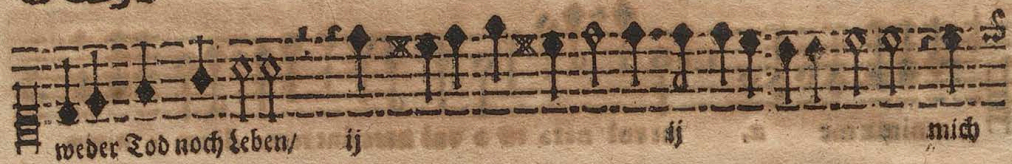 weder Tod noch Leben/ ij ij mich